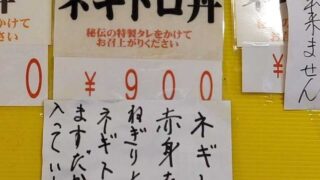 ネギトロ丼
秘伝の特製タレをかけて
お召上がりください
¥900
ネギト
赤身を
ねぎりと
ネギト
ますだか
入ってい
かけて
さい
0
来ません